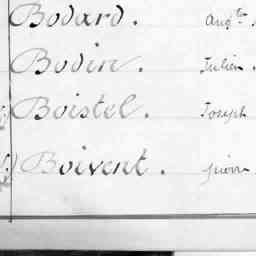 Bodard. Aug.te
Bodin. Julien.
Boistel. Joseph
Boivent. pierre